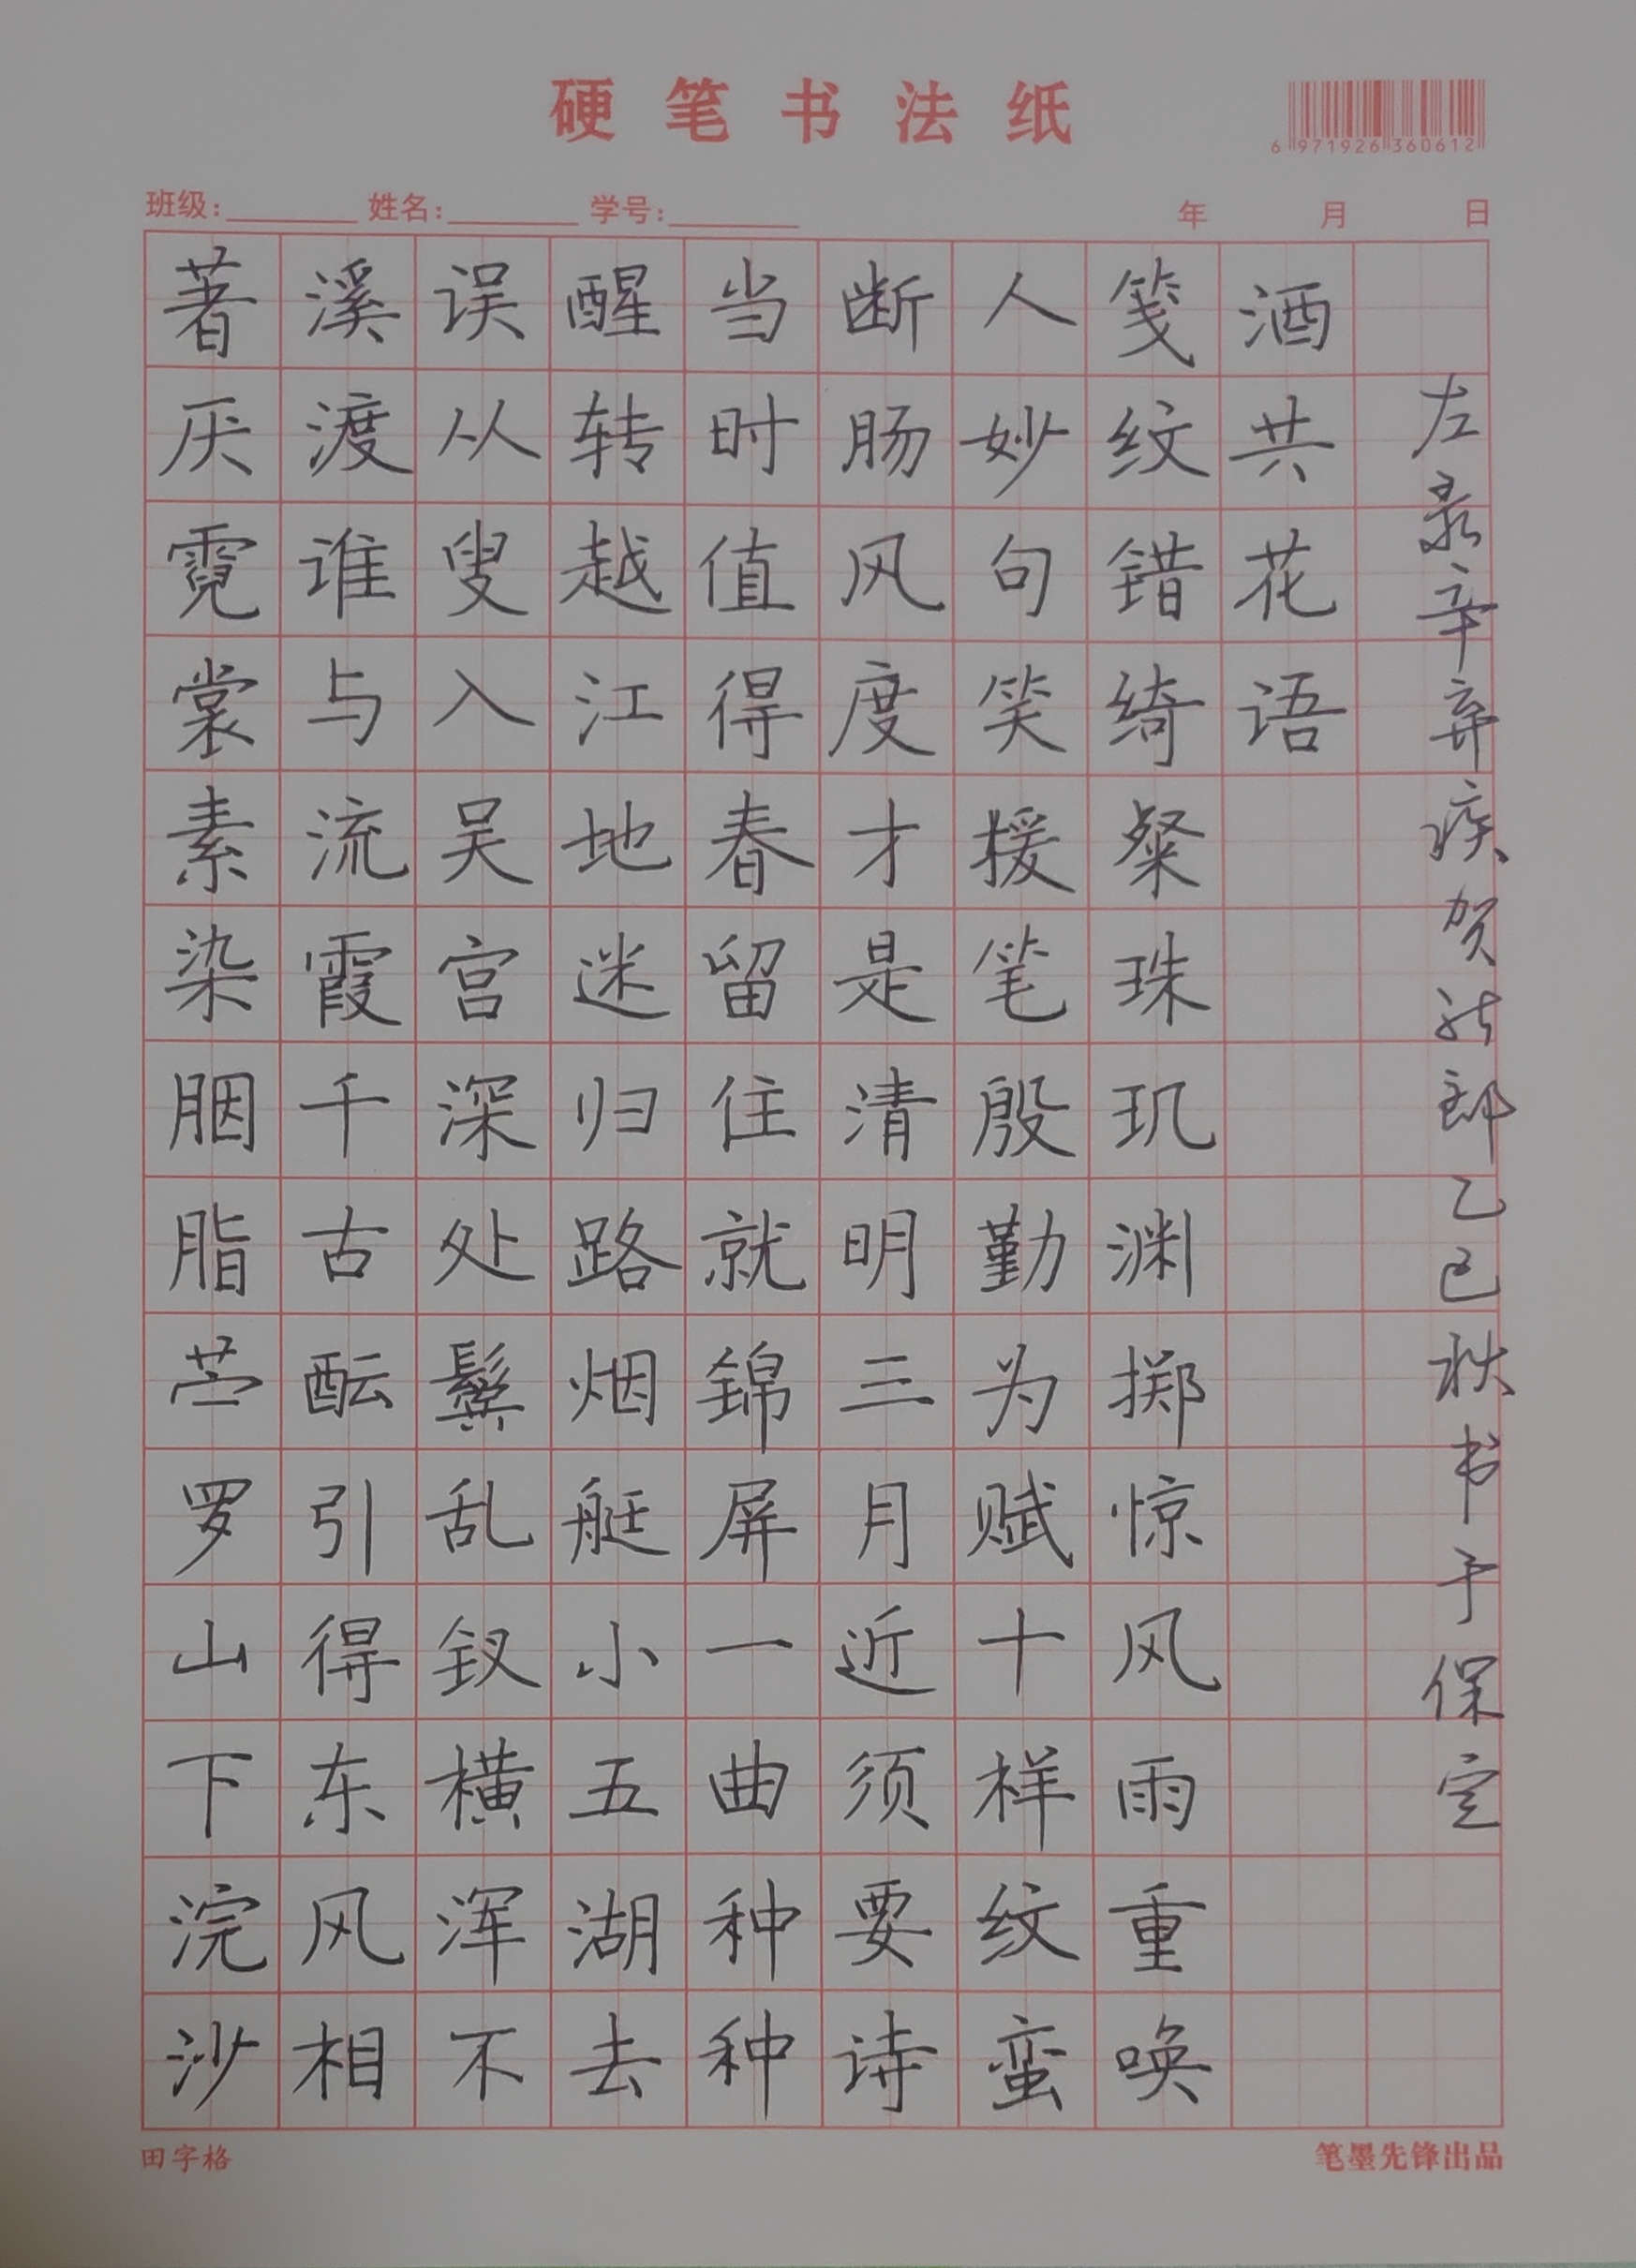 硬笔书法纸
6 971926 360612
班级: 姓名: 学号: 年 月 日
著厌霓裳素染胭脂苎罗山下浣沙
溪渡谁与流霞千古酝引得东风相
误从叟入吴宫深处鬓乱钗横浑不
醒转越江地迷归路烟艇小五湖去
当时值得春留住就錦屏一曲种种
断肠风度才是清明三月近须要诗
人妙句笑援笔殷勤为赋十样纹蛮
笺纹错绮粲珠玑渊掷惊风雨重唤
酒共花语
左录辛弃疾贺新郎乙巳秋书于保定
田字格
笔墨先锋出品